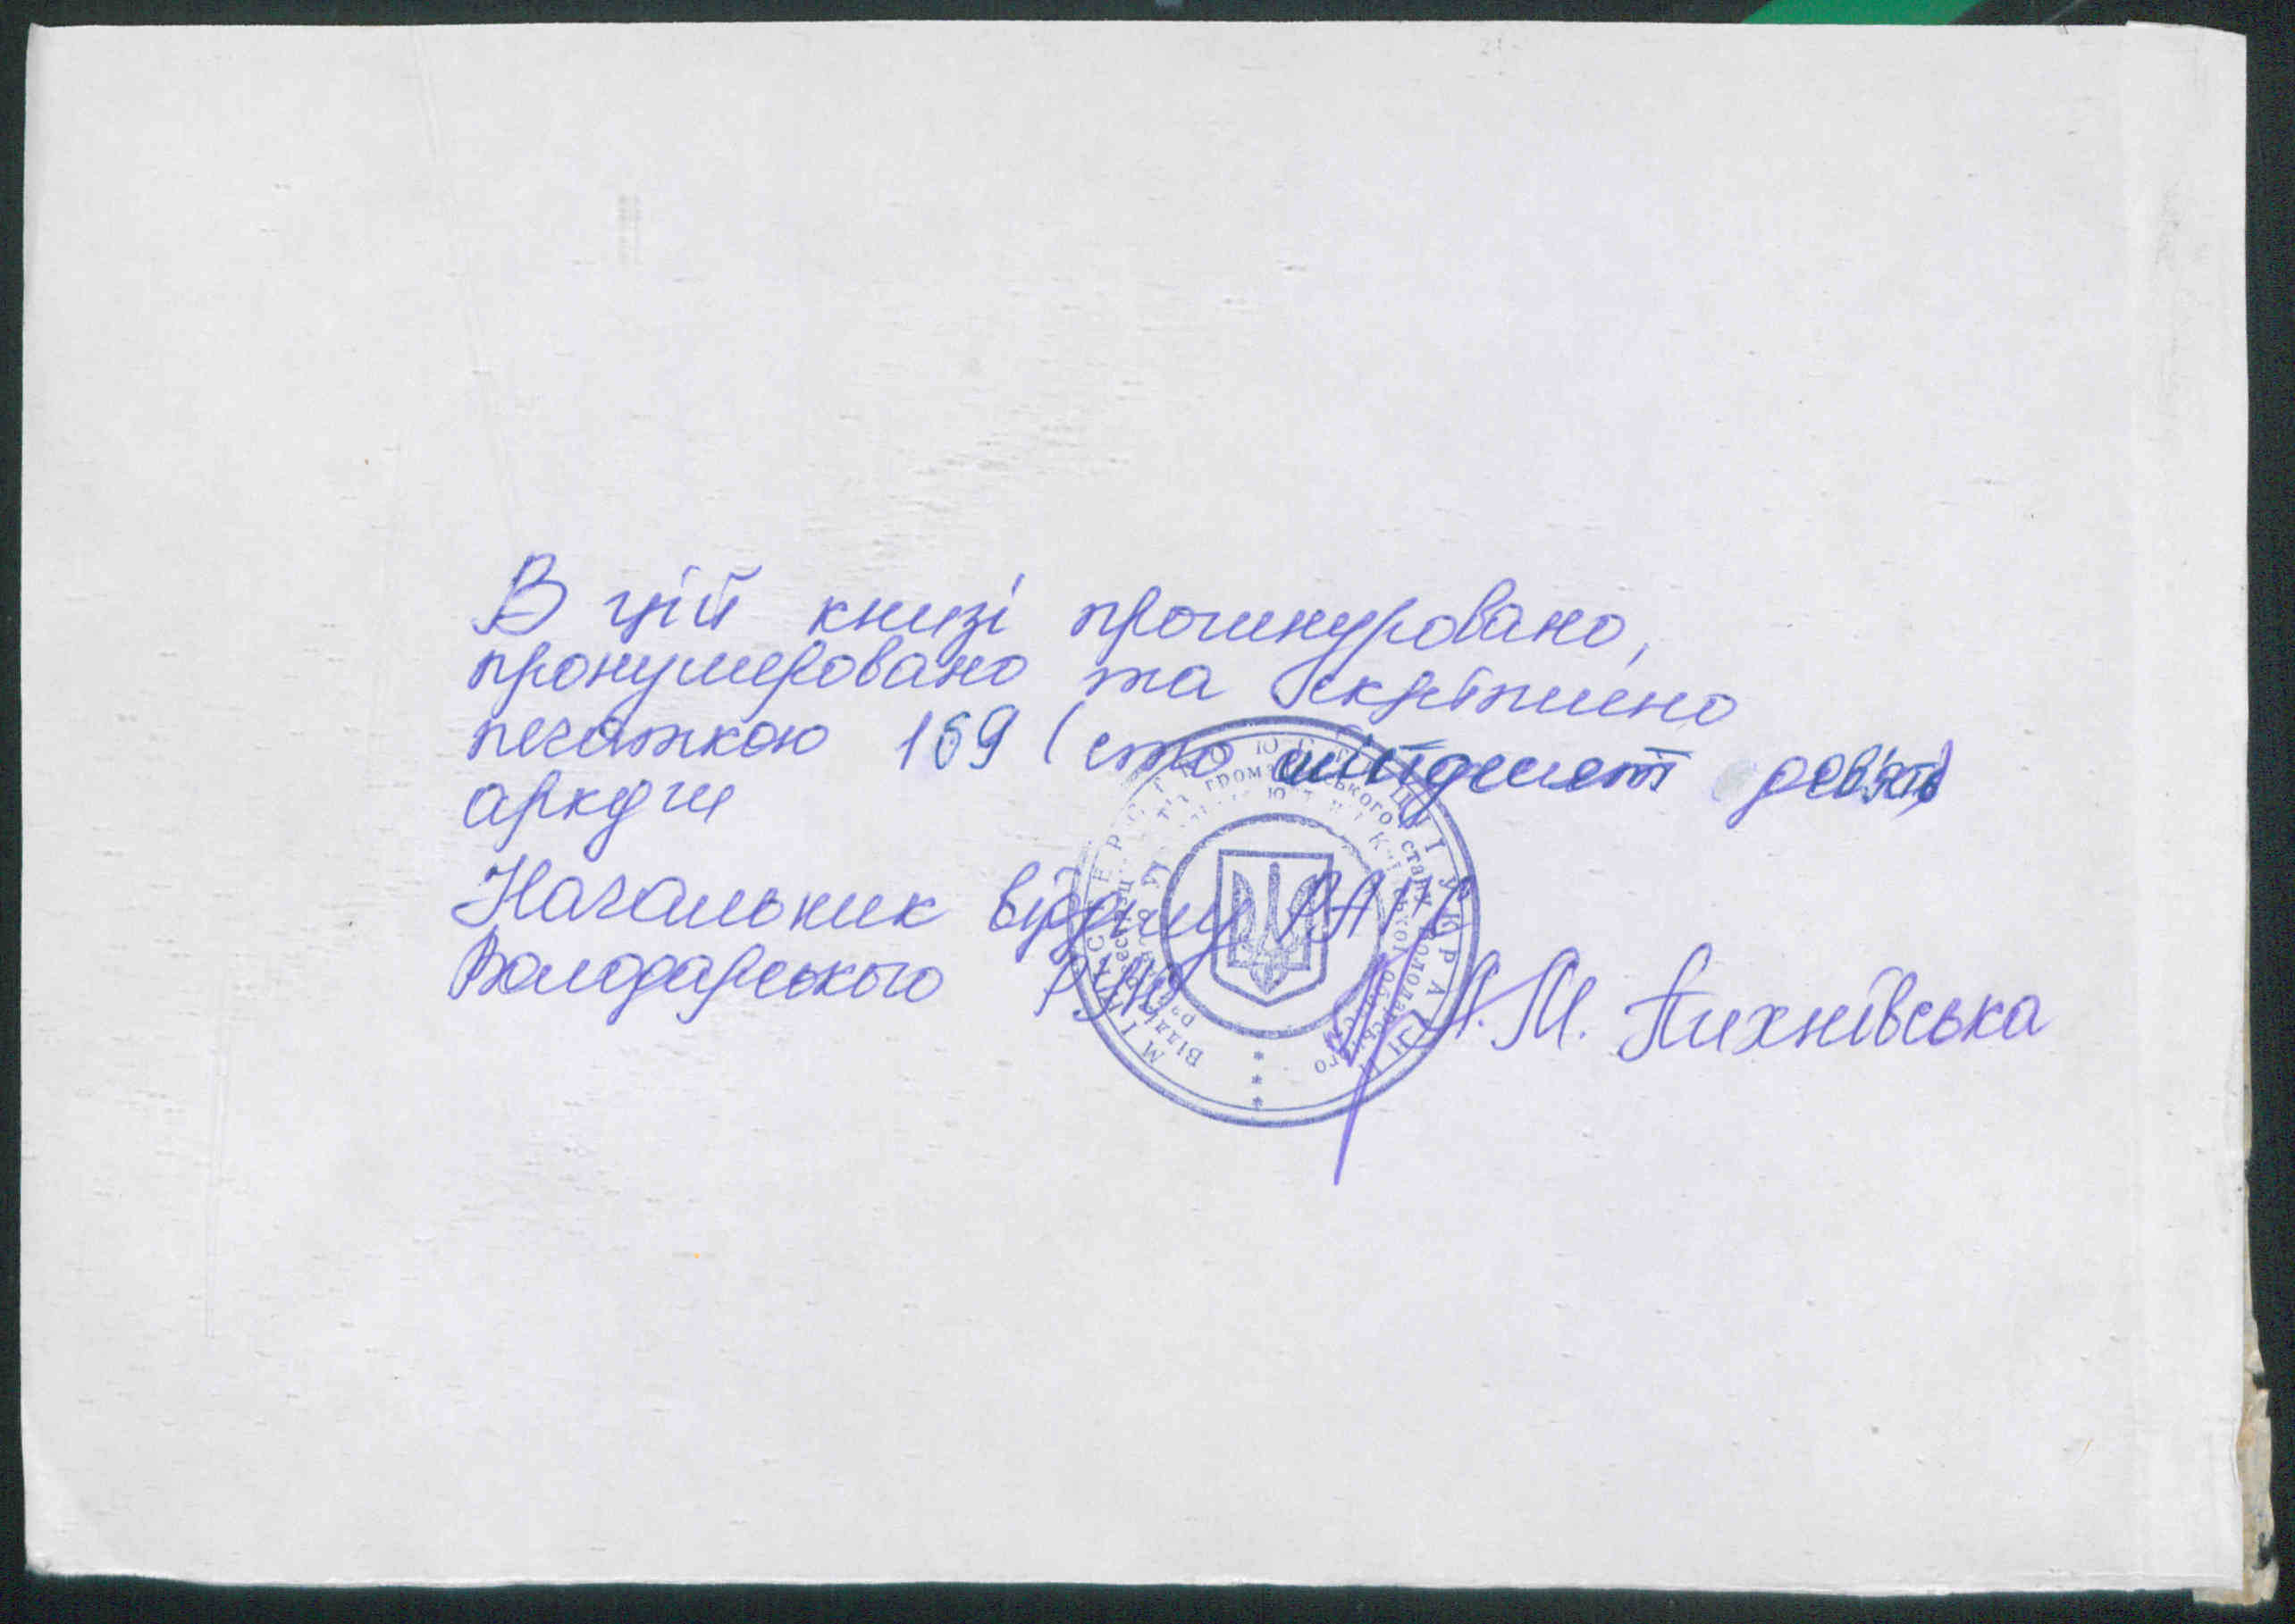 В цій книзі прошнуровано,
пронумеровано та скріплено
печаткою 169 (сто шістдесят дев'ять)
аркуш
Начальник відділу РАЦС
Володарського РУЮ А.М. Пихнівська
МІНІСТЕРСТВО ЮСТИЦІЇ УКРАЇНИ